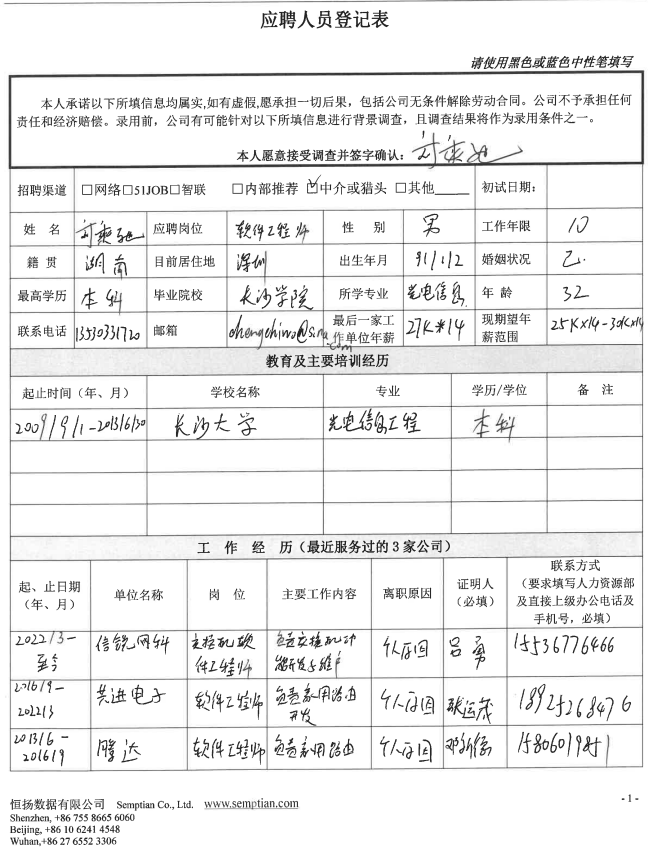 应聘人员登记表
请使用黑色或蓝色中性笔填写
本人承诺以下所填信息均属实,如有虚假,愿承担一切后果，包括公司无条件解除劳动合同。公司不予承担任何
责任和经济赔偿。录用前，公司有可能针对以下所填信息进行背景调查，且调查结果将作为录用条件之一。
本人愿意接受调查并签字确认：
招聘渠道 □网络□51JOB□智联 □内部推荐 ☑中介或猎头 □其他____ 初试日期：
姓 名 应聘岗位 软件工程师 性 别 男 工作年限 10
籍 贯 湖南 目前居住地 深圳 出生年月 91/1/12 婚姻状况 已
最高学历 本科 毕业院校 长沙学院 所学专业 光电信息 年 龄 32
联系电话 13530331720 邮箱 最后一家工作单位年薪 27K*14 现期望年薪范围 25K×14-30K×14
教育及主要培训经历
起止时间（年、月） 学校名称 专业 学历/学位 备 注
2009/9/1-2013/6/30 长沙大学 光电信息工程 本科
工 作 经 历（最近服务过的 3 家公司）
起、止日期（年、月） 单位名称 岗 位 主要工作内容 离职原因 证明人（必填） 联系方式（要求填写人力资源部及直接上级办公电话及手机号，必填）
2022/3-至今 信锐网科 交换机软件工程师 负责交换机功能开发与维护 个人原因 吕勇 15536776466
2016/9-2022/3 共进电子 软件工程师 负责家用路由开发 个人原因 张运茂 18925268476
2013/6-2016/9 腾达 软件工程师 负责家用路由 个人原因 15806019851
恒扬数据有限公司 Semptian Co., Ltd. www.semptian.com
- 1 -
Shenzhen, +86 755 8665 6060
Beijing, +86 10 6241 4548
Wuhan,+86 27 6552 3306